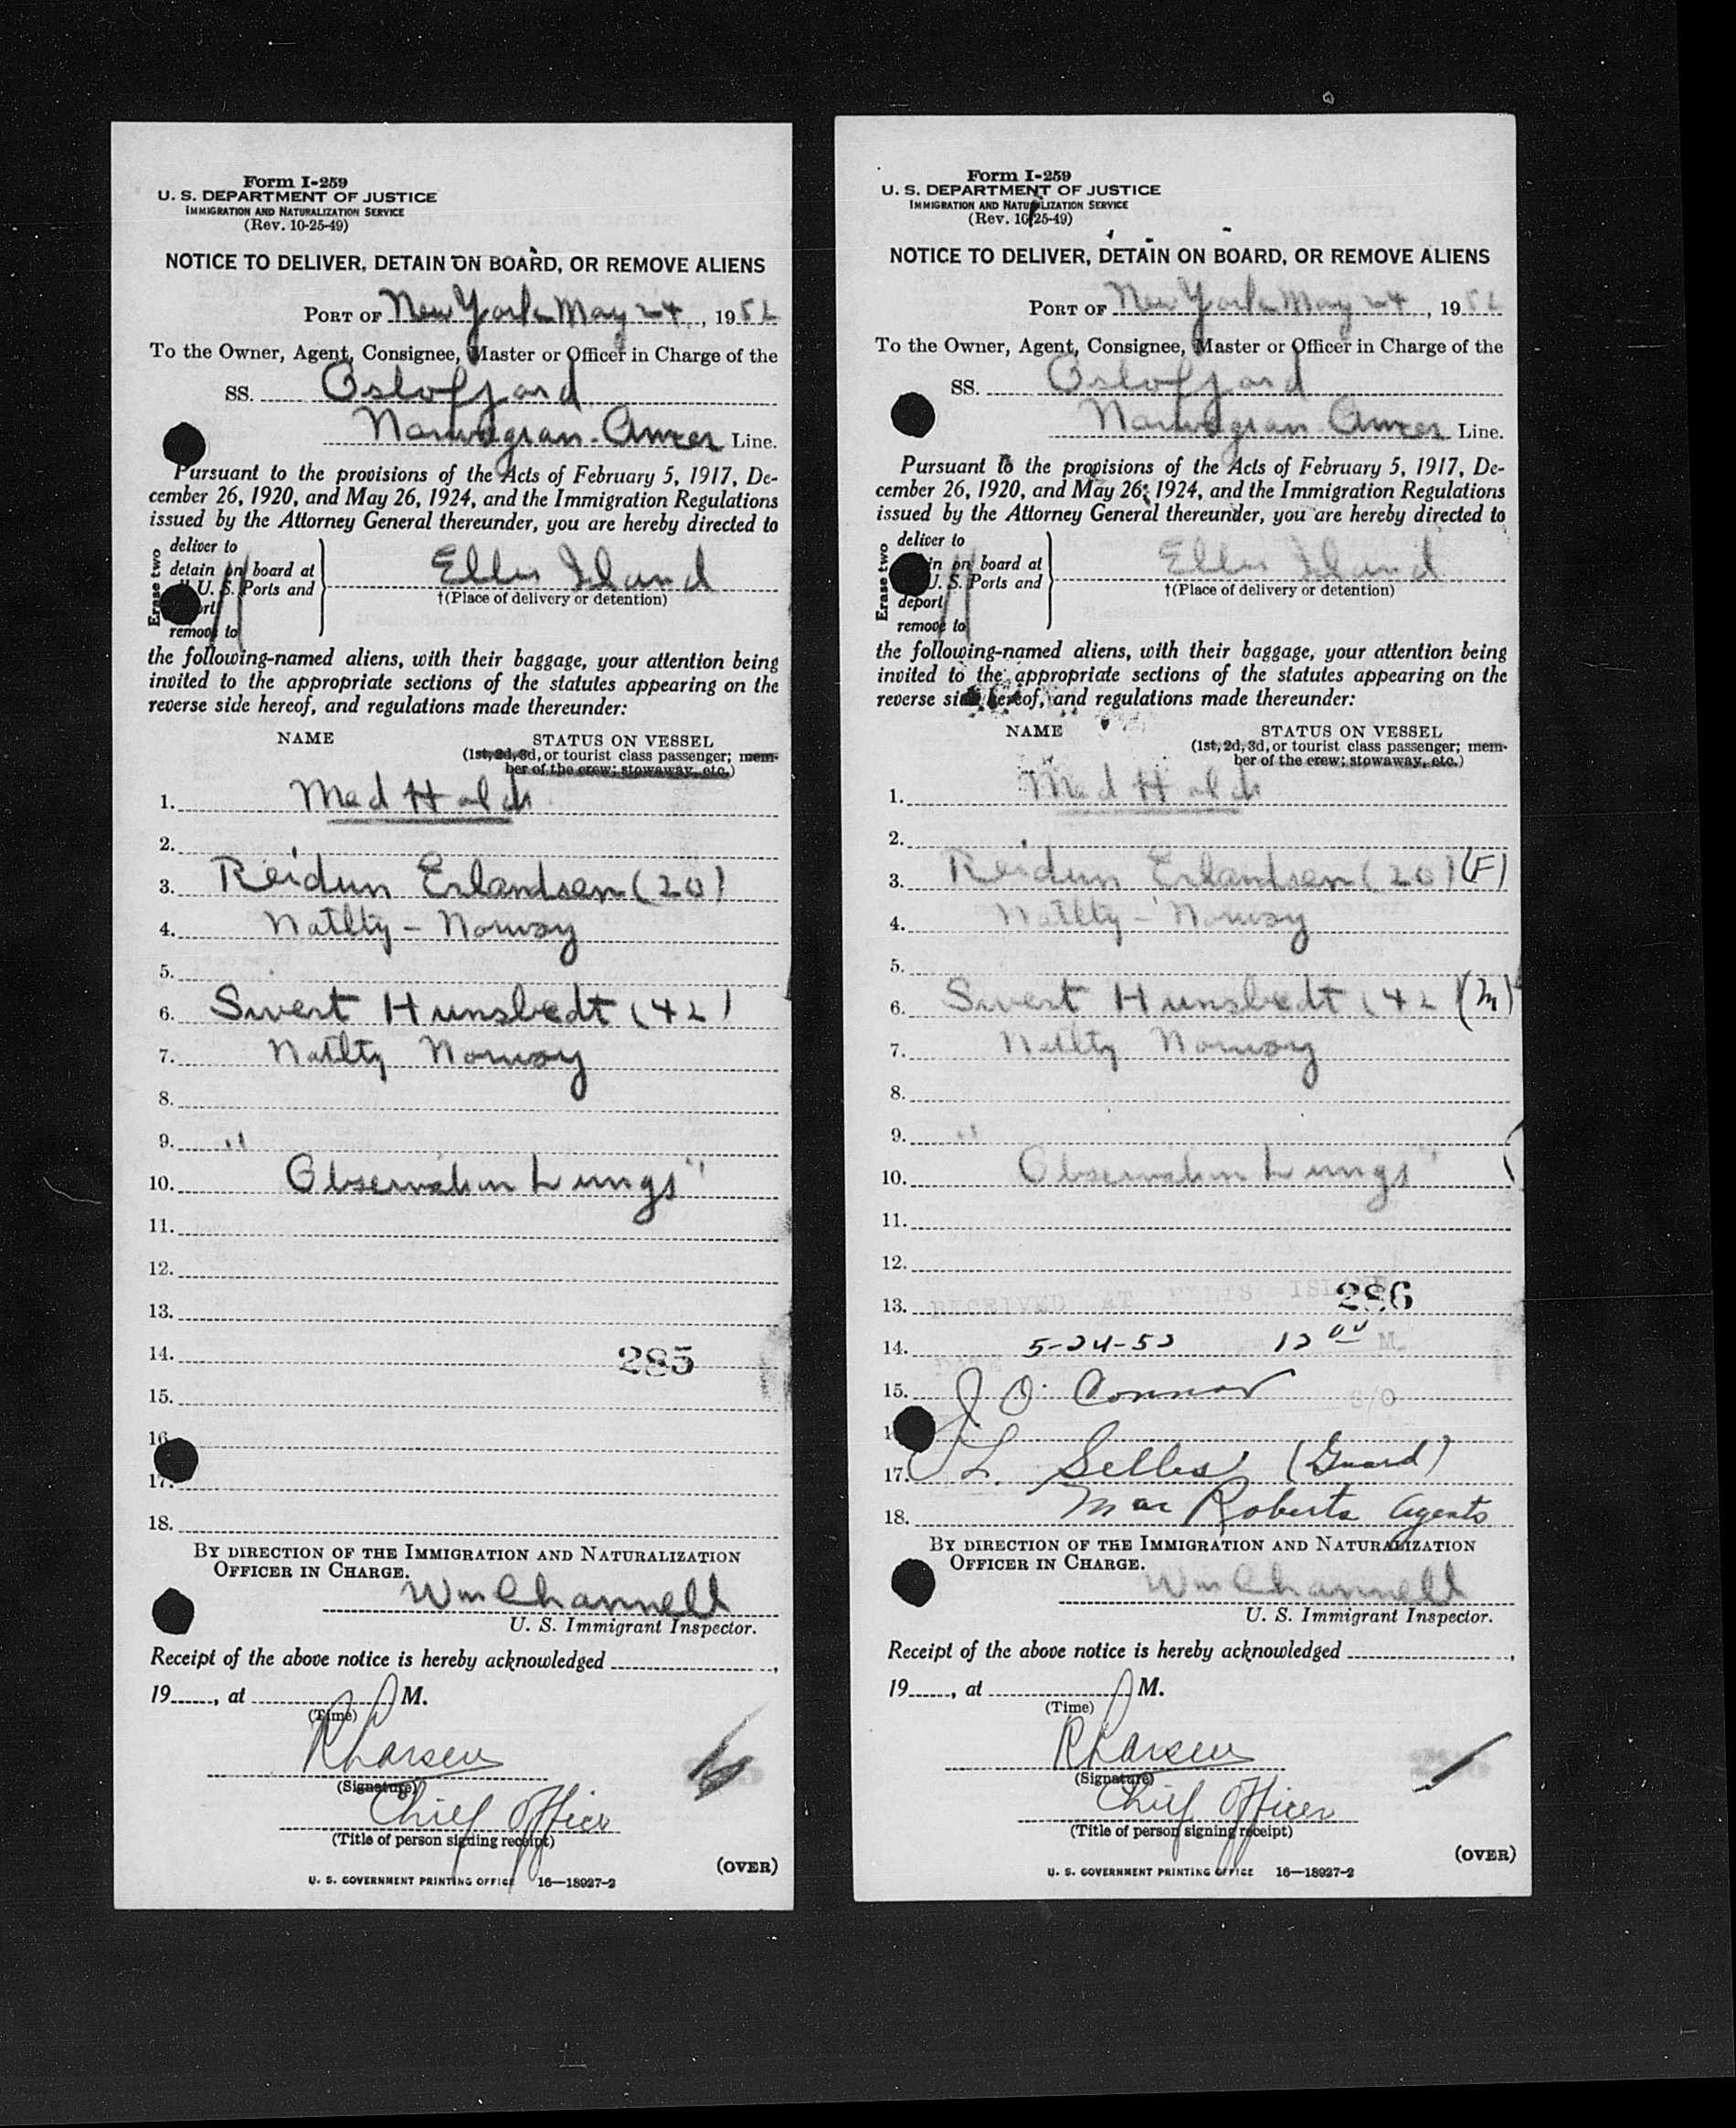 Form I-259
U. S. DEPARTMENT OF JUSTICE
IMMIGRATION AND NATURALIZATION SERVICE
(Rev. 10-25-49)
NOTICE TO DELIVER, DETAIN ON BOARD, OR REMOVE ALIENS
PORT OF New York May 24, 1952
To the Owner, Agent, Consignee, Master or Officer in Charge of the
SS. Oslofjord
Norwegian Amer Line.
Pursuant to the provisions of the Acts of February 5, 1917, De-
cember 26, 1920, and May 26, 1924, and the Immigration Regulations
issued by the Attorney General thereunder, you are hereby directed to
Erase two
deliver to
detain on board at
U. S. Ports and
remove to
Ellis Island
†(Place of delivery or detention)
the following-named aliens, with their baggage, your attention being
invited to the appropriate sections of the statutes appearing on the
reverse side hereof, and regulations made thereunder:
NAME STATUS ON VESSEL
(1st, 2d, 3d, or tourist class passenger; mem-
ber of the crew; stowaway, etc.)
1. Med Holds
2.
3. Reidun Erlandsen (20)
4. Natlty - Norway
5.
6. Sivert Hunsbedt (42)
7. Natlty Norway
8.
9. "
10. Observation Lungs"
11.
12.
13.
14. 285
15.
16.
17.
18.
BY DIRECTION OF THE IMMIGRATION AND NATURALIZATION
OFFICER IN CHARGE.
Wm Channell
U. S. Immigrant Inspector.
Receipt of the above notice is hereby acknowledged ,
19 , at M.
(Time)
R Larsen
(Signature)
Chief Officer
(Title of person signing receipt)
(OVER)
U. S. GOVERNMENT PRINTING OFFICE 16—18927-2
Form I-259
U. S. DEPARTMENT OF JUSTICE
IMMIGRATION AND NATURALIZATION SERVICE
(Rev. 10-25-49)
NOTICE TO DELIVER, DETAIN ON BOARD, OR REMOVE ALIENS
PORT OF New York May 24, 1952
To the Owner, Agent, Consignee, Master or Officer in Charge of the
SS. Oslofjord
Norwegian Amer Line.
Pursuant to the provisions of the Acts of February 5, 1917, De-
cember 26, 1920, and May 26, 1924, and the Immigration Regulations
issued by the Attorney General thereunder, you are hereby directed to
Erase two
deliver to
on board at
U. S. Ports and
deport
remove to
Ellis Island
†(Place of delivery or detention)
the following-named aliens, with their baggage, your attention being
invited to the appropriate sections of the statutes appearing on the
reverse side hereof, and regulations made thereunder:
NAME STATUS ON VESSEL
(1st, 2d, 3d, or tourist class passenger; mem-
ber of the crew; stowaway, etc.)
1. Med Holds
2.
3. Reidun Erlandsen (20) (F)
4. Natlty - Norway
5.
6. Sivert Hunsbedt (42 (M)
7. Natlty Norway
8.
9. "
10. Observation Lungs"
11.
12.
13. RECEIVED AT ELLIS ISLAND 286
14. 5-24-52 12 00 M.
15. J O'Connor S/O
17. L. Selles (Guard)
18. Mac Roberts Agents
BY DIRECTION OF THE IMMIGRATION AND NATURALIZATION
OFFICER IN CHARGE.
Wm Channell
U. S. Immigrant Inspector.
Receipt of the above notice is hereby acknowledged ,
19 , at M.
(Time)
R Larsen
(Signature)
Chief Officer
(Title of person signing receipt)
(OVER)
U. S. GOVERNMENT PRINTING OFFICE 16—18927-2